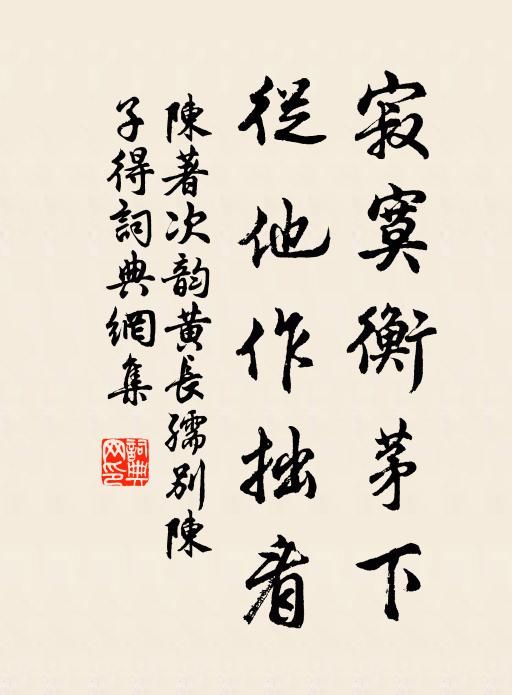 寂寞衡茅下
從他作拙看
陳著次韵黃長孺別陳
子得詞典網集
詞典網印